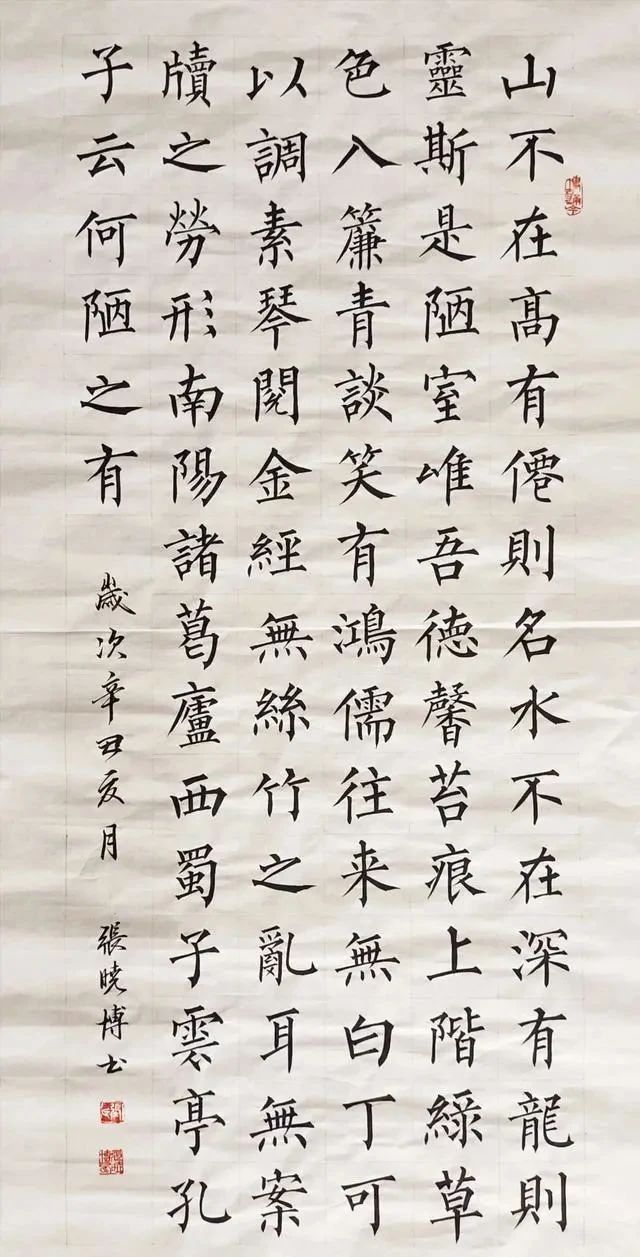 山不在髙有僊則名水不在深有龍則
靈斯是陋室唯吾徳馨苔痕上階緑草
色入簾青談笑有鴻儒往来無白丁可
以調素琴閲金經無絲竹之亂耳無案
牘之勞形南陽諸葛廬西蜀子雲亭孔
子云何陋之有
歲次辛丑夏月 張曉博书